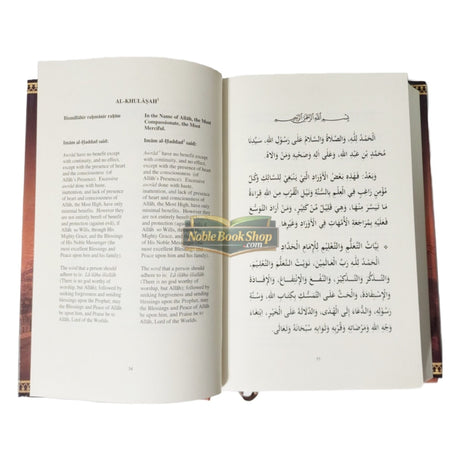 AL-KHULĀṢAH¹
Bismillāhir raḥmānir raḥīm
Imām al-Ḥaddād said:
Awrād have no benefit except
with continuity, and no effect,
except with presence of heart
and the consciousness (of
Allāh's Presence). Excessive
awrād done with haste,
inattention, and lack of presence
of heart and consciousness of
Allāh, the Most High, have only
minimal benefits. However they
are not entirely bereft of benefit,
Allāh so Wills, through His
Mighty Grace, and the Blessings
of His Noble Messenger (the
Most Excellent Blessings and
Peace upon him and his family).
The wird that a person should
adhere to is: Lā ilāha illallāh
(There is no god worthy of
worship, but Allāh), followed by
seeking forgiveness and sending
Blessings upon the Prophet, may
the Blessings and Peace of Allāh
be upon him, and Praise be to
Allāh, Lord of the Worlds.
In the Name of Allāh, the Most
Compassionate, the Most
Merciful.
Imām al-Ḥaddād¹ said:
Awrād have no benefit except
with continuity, and no effect,
except with presence of heart
and the consciousness (of
Allāh's Presence). Excessive
awrād done with haste,
inattention, and lack of presence
of heart and consciousness of
Allāh, the Most High, have only
minimal benefits. However they
are not entirely bereft of benefit,
Allāh so Wills, through His
Mighty Grace, and the Blessings
of His Noble Messenger (the
Most Excellent Blessings and
Peace upon him and his family).
The wird that a person should
adhere to is: Lā ilāha illallāh
(There is no god worthy of
worship, but Allāh), followed by
seeking forgiveness and sending
Blessings upon the Prophet, may
the Blessings and Peace of Allāh
be upon him, and Praise be to
Allāh, Lord of the Worlds.
34
بِسْمِ اللهِ الرَّحْمٰنِ الرَّحِيْمِ
الْحَمْدُ لِلَّهِ، وَالصَّلَاةُ وَالسَّلَامُ عَلَى رَسُوْلِ اللهِ، سَيِّدِنَا
مُحَمَّدِ بْنِ عَبْدِ اللهِ، وَعَلَى آلِهِ وَصَحْبِهِ وَمَنْ وَالَاهُ
وَبَعْدُ، فَهَذِهِ بَعْضُ الْأَوْرَادِ الَّتِيْ يَنْبَغِيْ لِلسَّالِكِ وَكُلِّ
مُؤْمِنٍ رَاغِبٍ فِي الْعِلْمِ بِالسُّنَّةِ وَنَيْلِ الْقُرْبِ مِنَ اللهِ قِرَاءَةُ
مَا تَيَسَّرَ مِنْهَا، وَهِيَ قَلِيْلٌ مِنْ كَثِيْرٍ، وَمَنْ أَرَادَ التَّوَسُّعَ
فَعَلَيْهِ بِمُرَاجَعَةِ الْأُمَّهَاتِ فِيْ هَذَا الْفَنِّ
* نِيَّاتُ التَّعَلُّمِ وَالتَّعْلِيْمِ لِلْإِمَامِ الْحَدَّادِ
الْحَمْدُ لِلَّهِ رَبِّ الْعَالَمِيْنَ، نَوَيْتُ التَّعَلُّمَ وَالتَّعْلِيْمَ،
وَالتَّذَكُّرَ وَالتَّذْكِيْرَ، وَالنَّفْعَ وَالْاِنْتِفَاعَ، وَالْإِفَادَةَ
وَالْاِسْتِفَادَةَ، وَالْحَثَّ عَلَى التَّمَسُّكِ بِكِتَابِ اللهِ، وَسُنَّةِ
رَسُوْلِهِ، وَالدُّعَاءَ إِلَى الْهُدَى، وَالدَّلَالَةَ عَلَى الْخَيْرِ، ابْتِغَاءَ
وَجْهِ اللهِ وَمَرْضَاتِهِ وَقُرْبِهِ وَثَوَابِهِ سُبْحَانَهُ وَتَعَالَى
35
NobleBookShop
.com